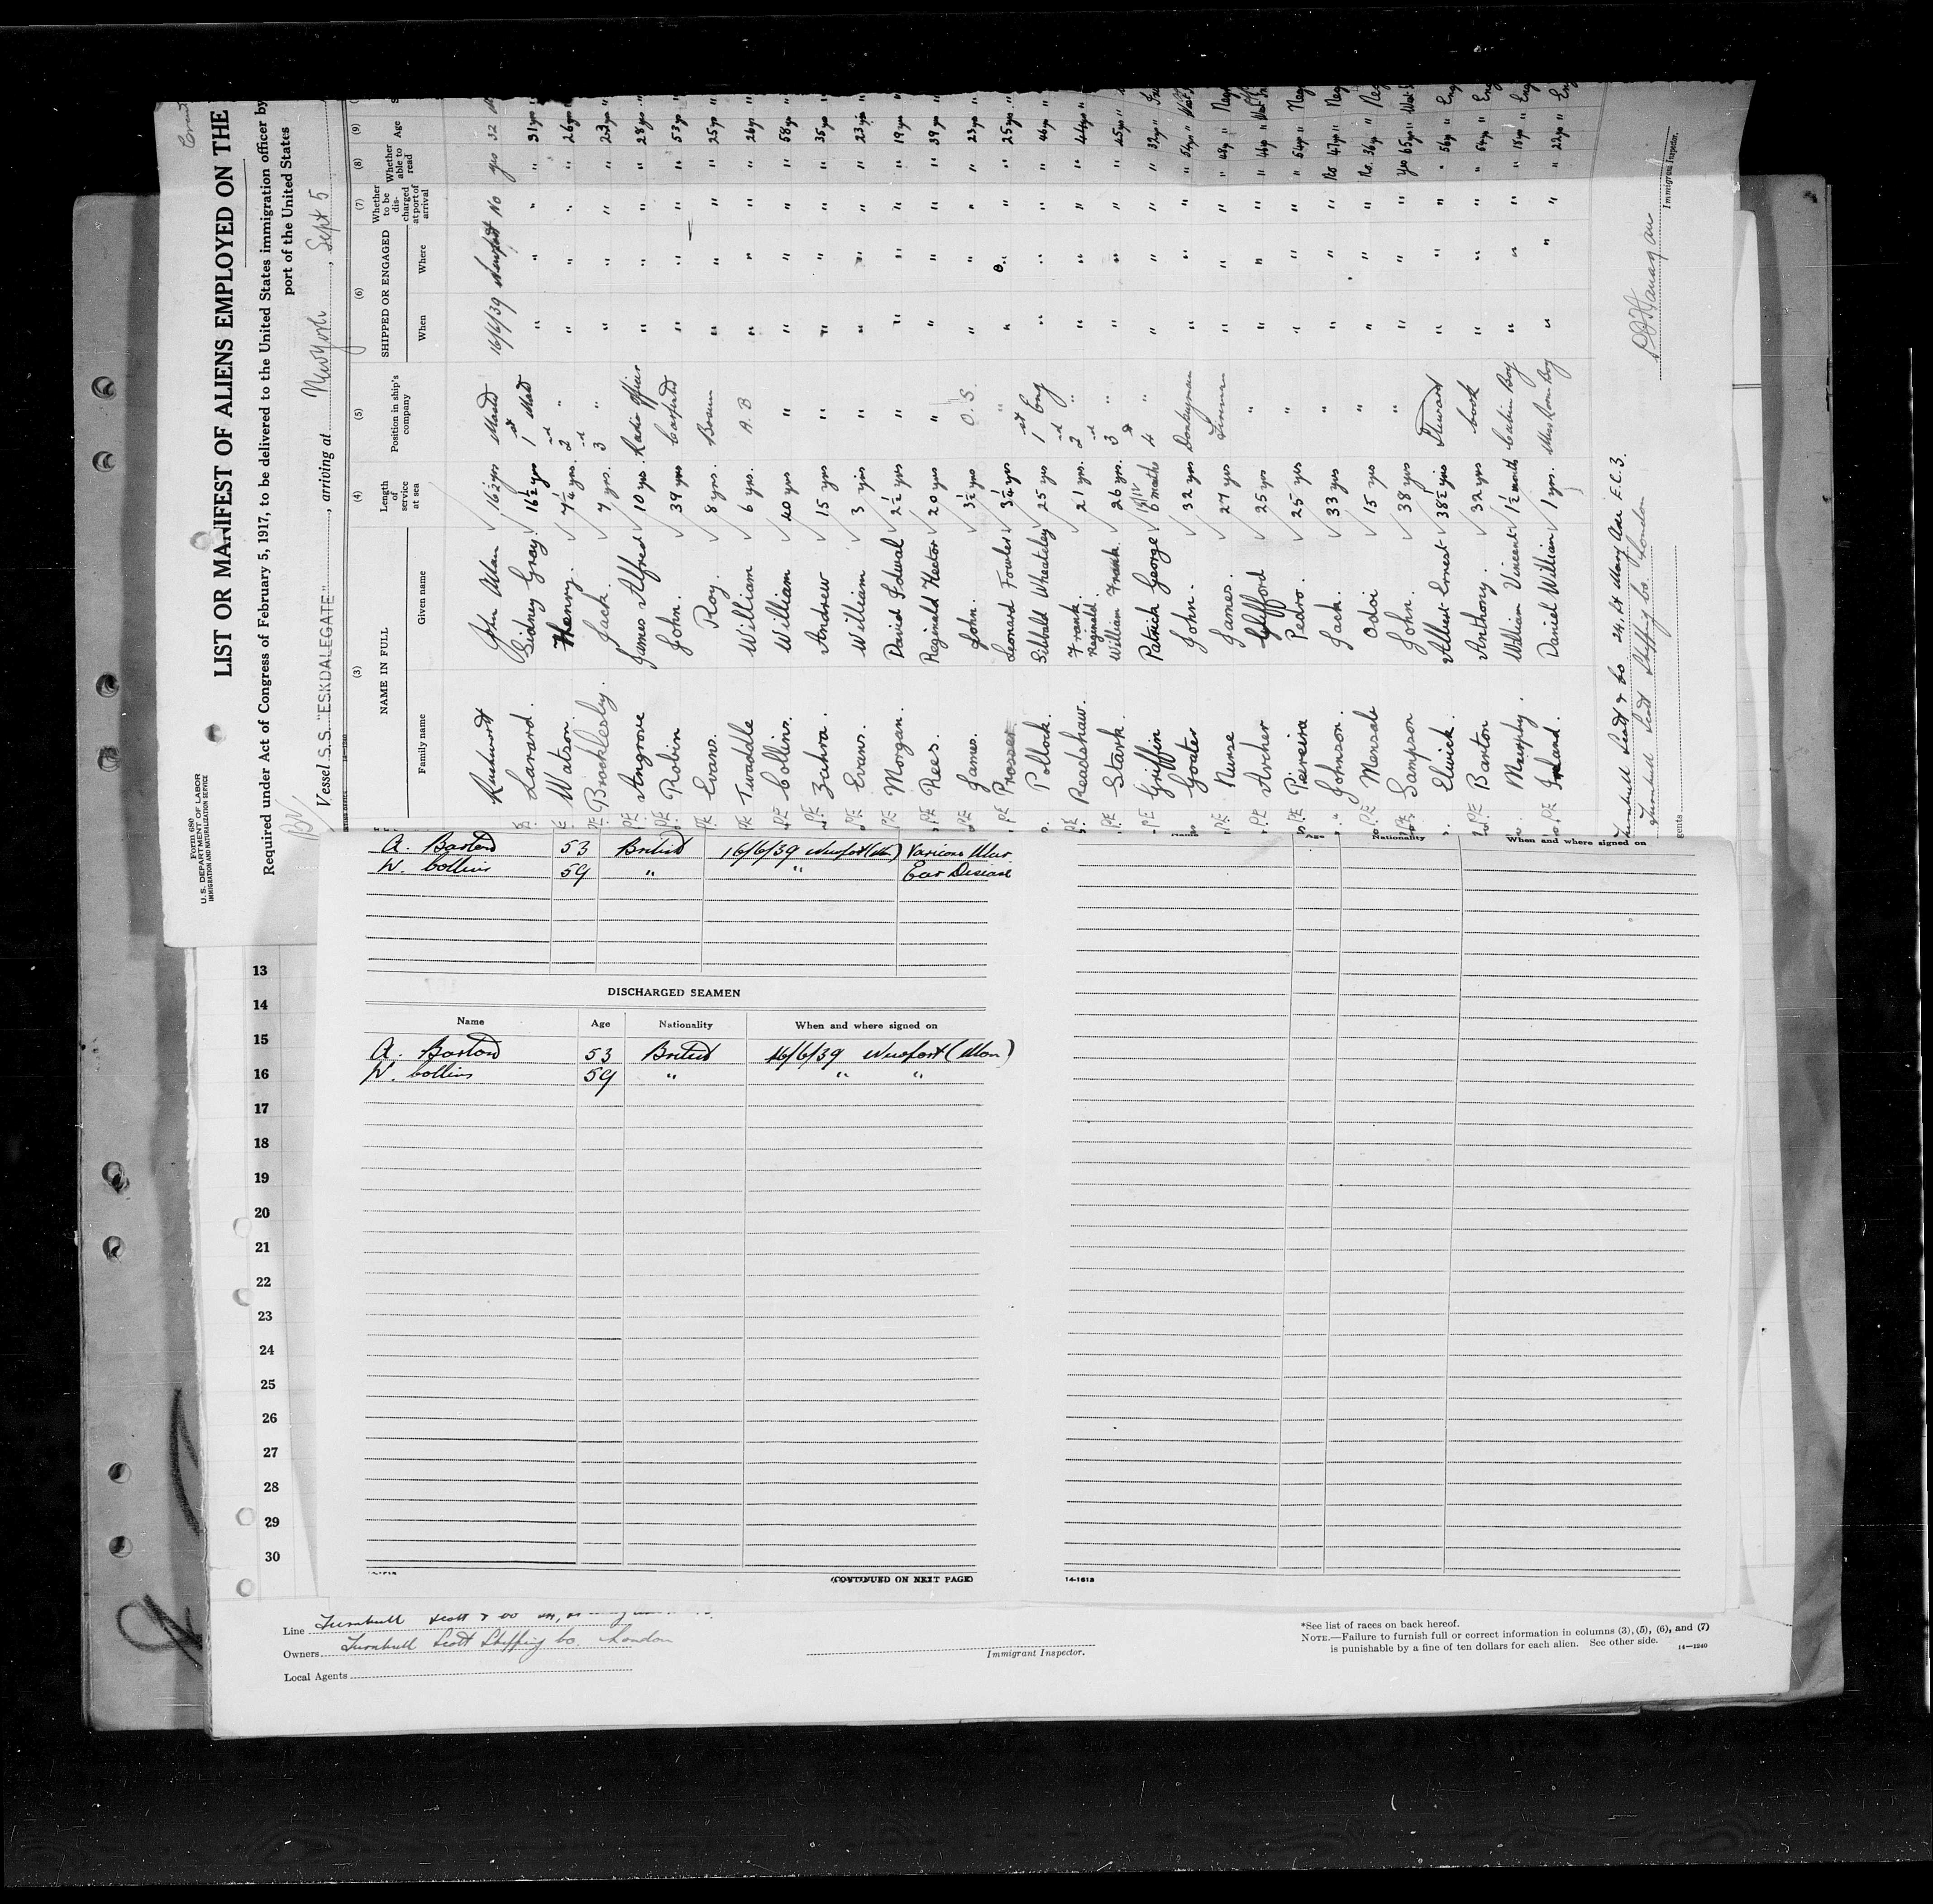 Form 680
U. S. DEPARTMENT OF LABOR
IMMIGRATION AND NATURALIZATION SERVICE
LIST OR MANIFEST OF ALIENS EMPLOYED ON THE
Required under Act of Congress of February 5, 1917, to be delivered to the United States immigration officer by
port of the United States
Vessel S.S. "ESKDALEGATE", arriving at New York, Sept 5
(3) (4) (5) (6) (7) (8) (9)
NAME IN FULL Length of service at sea Position in ship's company SHIPPED OR ENGAGED Whether to be discharged at port of arrival Whether able to read Age
Family name Given name When Where
John Allan 16½ yrs Master 16/6/39 Newport No yes 32
Larard. Sidney Gray. 16½ yrs 1st Mate " " " " 31 yrs "
Watson Henry. 7¼ yrs. 2nd " " " " " 26 yrs "
Brocklesby. Jack. 7 yrs. 3rd " " " " " 23 yrs "
Angrove James Alfred 10 yrs. Radio Officer " " " " 28 yrs "
Robin John. 39 yrs Carpenter " " " " 53 yrs "
Evans. Roy. 8 yrs. Bosun " " " " 25 yrs "
Twaddle William 6 yrs. A.B " " " " 26 yrs "
Collins William 40 yrs " " " " " 58 yrs "
Zahra. Andrew 15 yrs " " " " " 35 yrs "
Evans. William 3 yrs " " " " " 23 yrs "
Morgan. David Edwal 2½ yrs " " " " " 19 yrs "
Rees. Reginald Hector 20 yrs " " " " " 39 yrs "
James. John. 3½ yrs O.S. " " " " 23 yrs "
Prosser Leonard Fowler 3¼ yrs " " " " " 25 yrs "
Pollock. Sibbald Wheatley 25 yrs 1st Eng " " " " 46 yrs "
Readshaw. Frank Reginald. 21 yrs. 2nd " " " " " 44 yrs "
Stark. William Frank. 26 yrs. 3rd " " " " " 45 yrs "
Griffin Patrick George 6 months 4th " " " " " 32 yrs "
Goater John. 32 yrs Donkeyman " " " " 54 yrs "
Nurse James. 27 yrs Firemen " " " " 48 yrs "
Archer Clifford 25 yrs " " " " " 46 yrs "
Peireira Pedro. 25 yrs " " " " " 54 yrs "
Johnson. Jack. 33 yrs " " " " No 47 yrs "
Mensah Odoi 15 yrs " " " " No. 36 yrs "
Sampson John. 38 yrs " " " " Yes 65 yrs "
Elwick. Albert Ernest 38½ yrs Steward " " " " 56 yrs "
Barton Anthony. 32 yrs Cook " " " " 54 yrs "
Murphy. William Vincent 1½ month Cabin Boy " " " " 18 yrs "
Ireland. Daniel William 1 yrs. Mess Room Boy " " " " 22 yrs "
Turnbull Scott & Co 24, St Mary Axe E.C.3.
Turnbull Scott Shipping Co. London
Immigrant Inspector.
A. Barton 53 British 16/6/39 Newport (Mon) Various Ulcer
W. Collins 59 " " Ear Disease
DISCHARGED SEAMEN
Name Age Nationality When and where signed on
A. Barton 53 British 16/6/39 Newport (Mon)
W. Collins 59 " " "
(CONTINUED ON NEXT PAGE)
Name Age Nationality When and where signed on
14-1613
13
14
15
16
17
18
19
20
21
22
23
24
25
26
27
28
29
30
Line Turnbull Scott & Co
Owners Turnbull Scott Shipping Co. London
Local Agents
Immigrant Inspector.
*See list of races on back hereof.
NOTE.—Failure to furnish full or correct information in columns (3), (5), (6), and (7)
is punishable by a fine of ten dollars for each alien. See other side. 14—1240